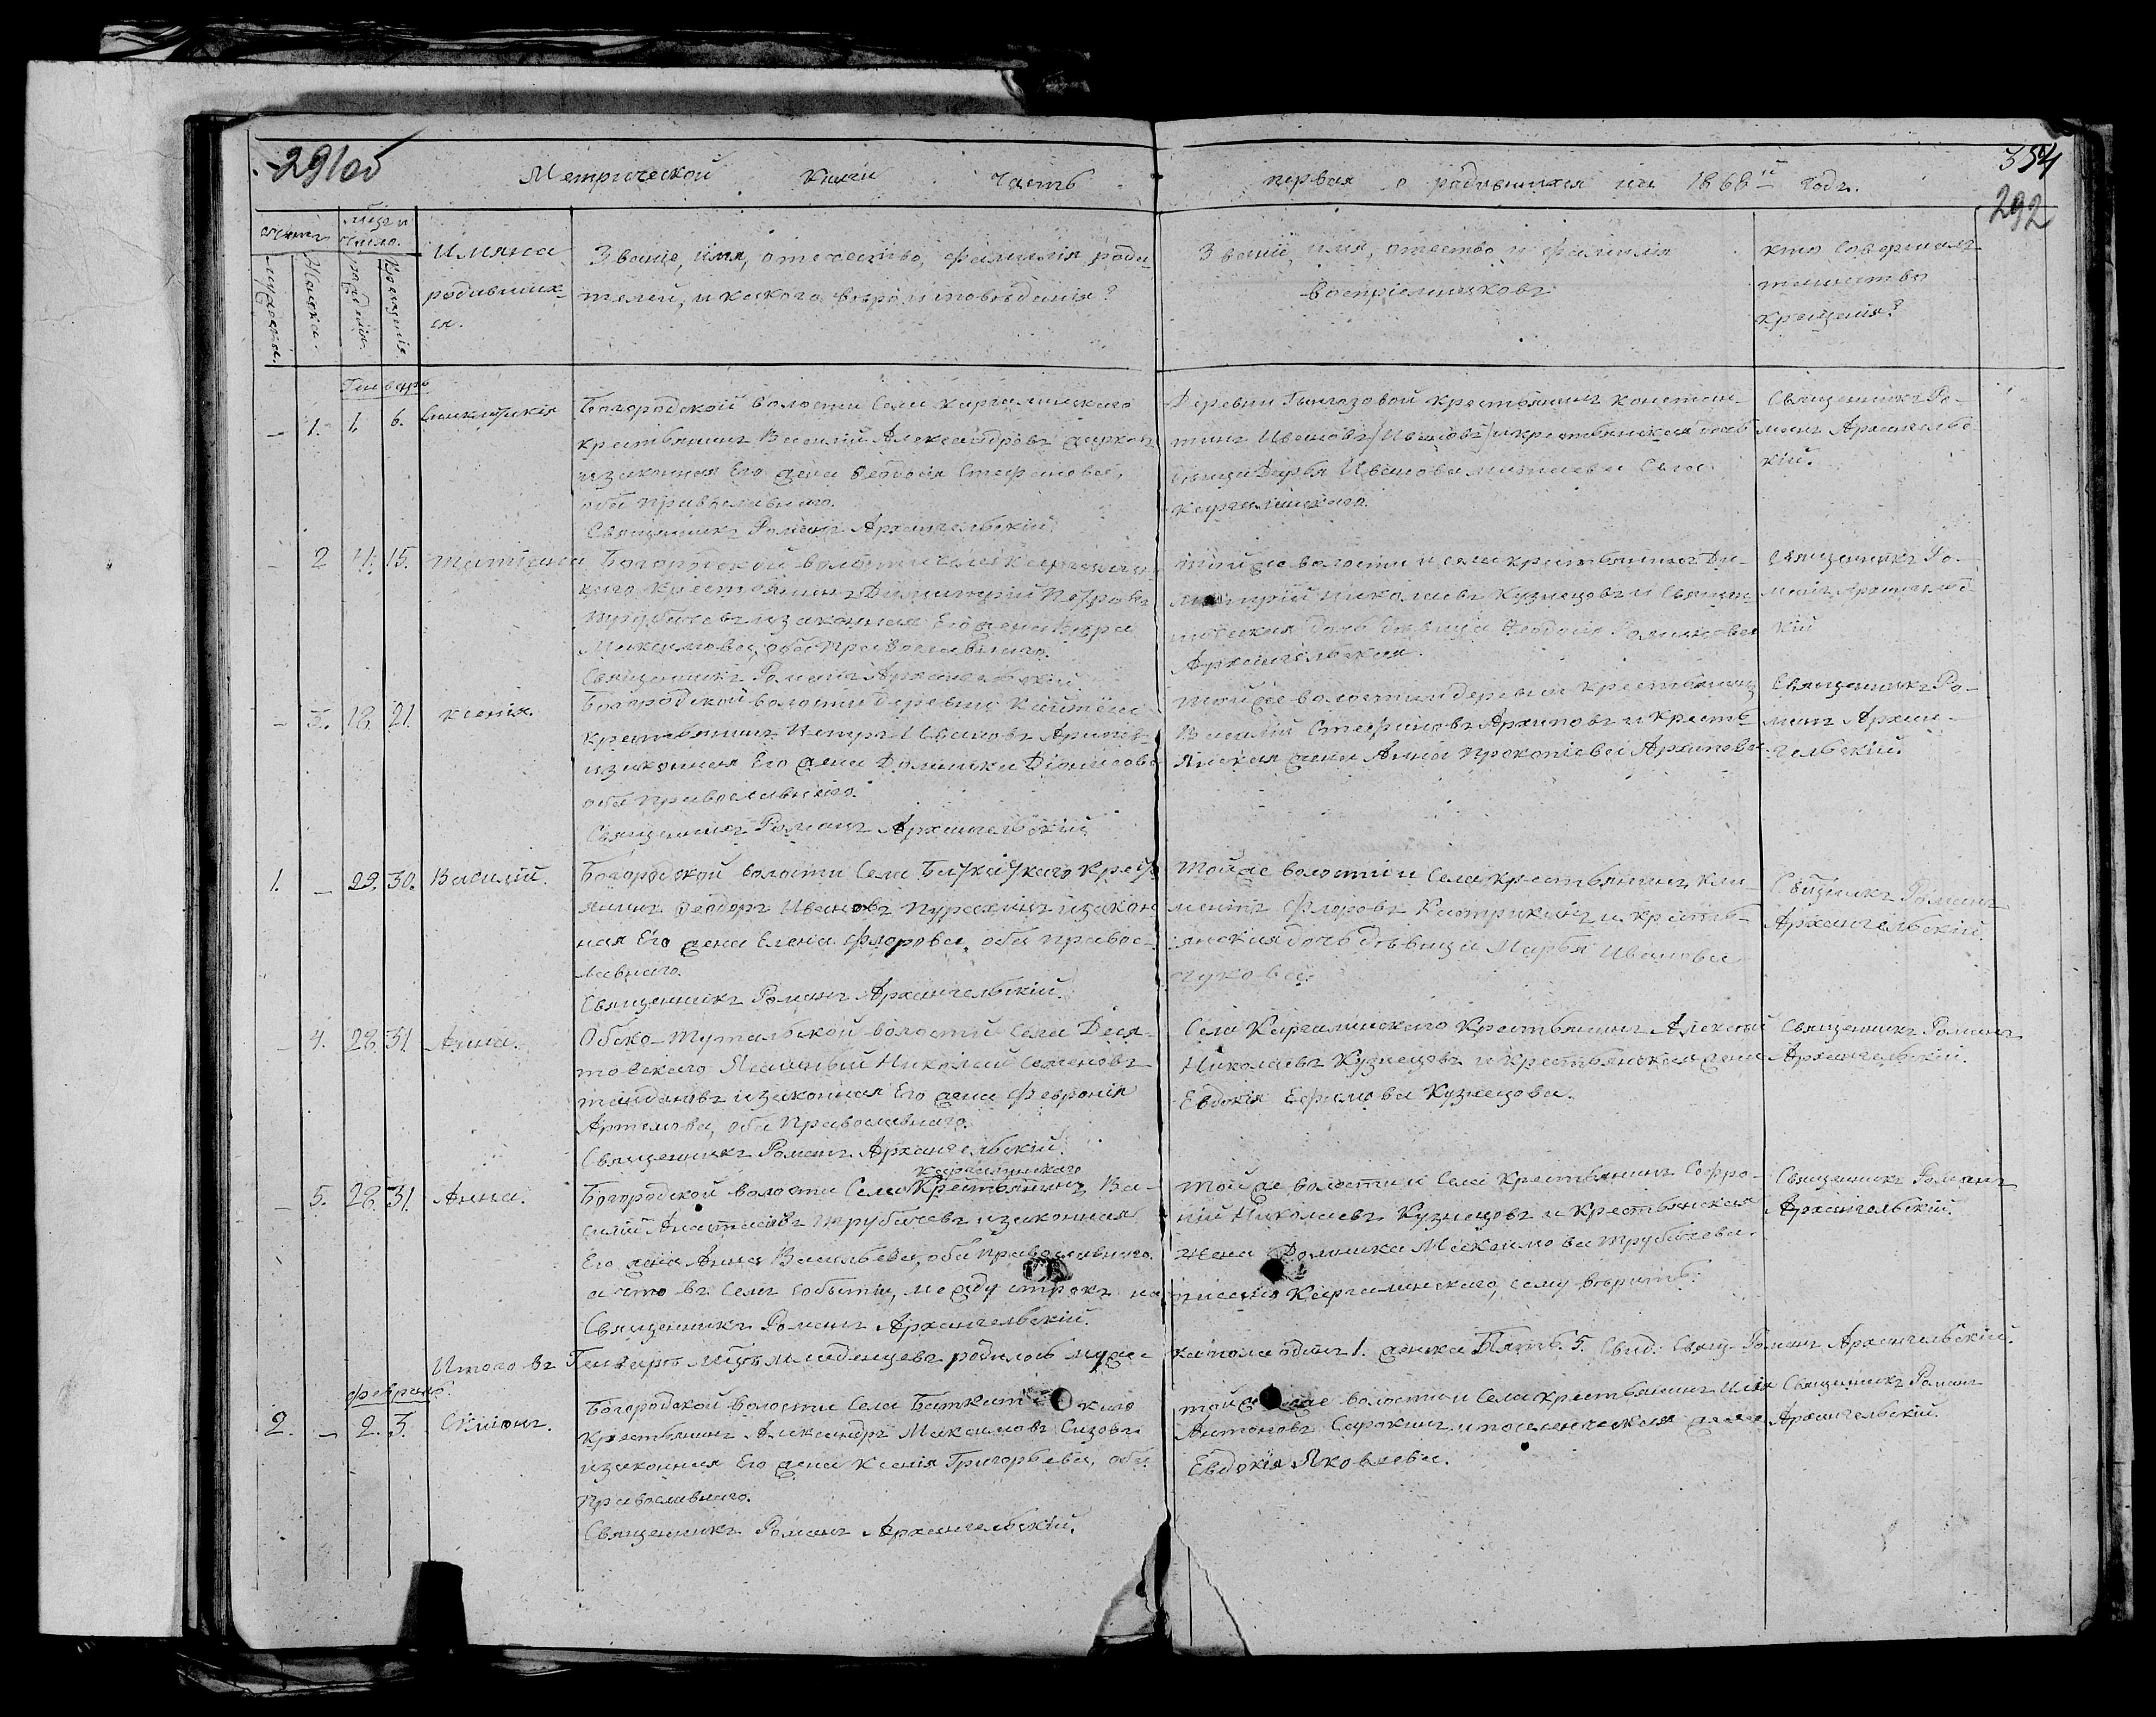 291об
354
292
Метрической Книги часть
первая о родившихся на 1868й годъ.
счетъ
Мужеска.
Женска.
Мцъ и
число.
рожденія.
Крещенія
Имяна
родивших-
ся.
Званіе, имя, отечество, фамилія роди-
телей, и какого вѣроисповѣданія?
Званіе, имя, отчество и фамилія
воспріемниковъ
кто Совершалъ
таинство
Крещенія?
Генварь
– 1. 1. 6. Синклитикія
Богородской волости Села Каргалинскаго
крестьянинъ Василій Александровъ
и законная Его жена Ѳеодосія Стефановна,
оба православнаго.
Священникъ Романъ Архангельскій
Деревни крестьянинъ Констан-
тинъ Ивановъ /Ивановъ/ и крестьянская дочь
дѣвица Дарья Иванова Села
Каргалинскаго.
Священникъ Ро-
манъ Архангельс-
кій.
– 2 4. 15. Татіана
Богородской волости села Каргалинс-
каго Крестьянинъ Димитрій Петровъ
Трубачевъ и законная Его жена Вѣра
Максимова, оба Православнаго.
Священникъ Романъ Архангельскій
Той же волости и села крестьянинъ Ди-
митрій Николаевъ Кузнецовъ и Священ-
ническая дочь дѣвица Ѳеодосія Романова
Архангельская.
Священникъ Ро-
манъ Архангельс-
кій
– 3. 18. 21. Ксенія.
Богородской волости деревни
крестьянинъ Петръ Ивановъ
и законная Его жена Домника Діонисова
оба православнаго.
Священникъ Романъ Архангельскій
Той же волости и деревни Крестьянинъ
Василій Стефановъ Архиповъ и Кресть-
янская жена Анна Прокопіева Архипова
Священникъ Ро-
манъ Архан-
гельскій.
1. – 29. 30. Василій.
Богородской волости Села Баткатскаго Крест
янинъ Ѳеодоръ Ивановъ и закон
ная Его жена Елена Флорова, оба правос-
лавнаго.
Священникъ Романъ Архангельскій.
Той же волости и Села Крестьянинъ Кли-
ментъ Флоровъ и крестья-
янская дочь дѣвица Марья Иванова
Чукова.
Свщнникъ Романъ
Архангельскій.
– 4. 28. 31 Анна.
Обско-Тутальской волости Села Деся-
товскаго Николай Семеновъ
и законная Его жена Февронія
Артемова, оба Православнаго.
Священникъ Романъ Архангельскій.
Села Каргалинскаго Крестьянинъ Алексѣй
Николаевъ Кузнецовъ и Крестьянская жена
Евдокія Ефимова Кузнецова.
Священникъ Романъ
Архангельскій.
Каргалинскаго
– 5. 28. 31. Анна.
Богородской волости Села Крестьянинъ Ва-
силій Анастасіевъ Трубачевъ и законная
Его жена Анна Васильева, оба православнаго.
а что въ Семъ событіи, между строкъ на
Священникъ Романъ Архангельскій.
Той же волости и Села Крестьянинъ Софро-
ній Николаевъ Кузнецовъ и Крестьянская
жена Домника Максимова Трубачева.
писано Каргалинскаго, сему вѣрить.
Священникъ Романъ
Архангельскій.
Итого въ Генварѣ мцѣ младенцевъ родилось мужес-
ка пола одинъ 1. женска Пять. 5. Свид. Свящ. Романъ Архангельскій.
февраль.
2. – 2. 3. Симонъ.
Богородской волости Села Баткат каго
Крестьянинъ Александръ Максимовъ Сизовъ
и законная Его жена Ксенія Григорьева, оба
Православнаго.
Священникъ Романъ Архангельскій.
той же волости и Села крестьянинъ Илія
Антоновъ Сорокинъ и поселенческая жена
Евдокія Яковлева.
Священникъ Романъ
Архангельскій.